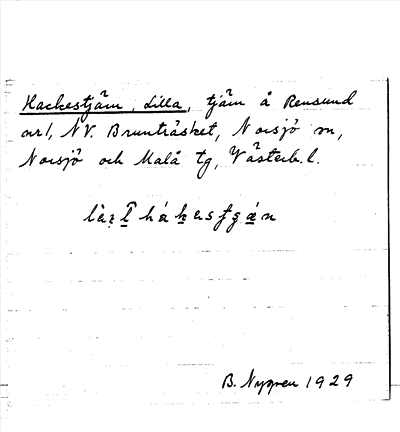 Hackestjärn, Lilla, tjärn å Rensund
nr1, NV. Brunträsket, Norsjö sn,
Norsjö och Malå tg, Västerb. l.
B. Nygren 1929